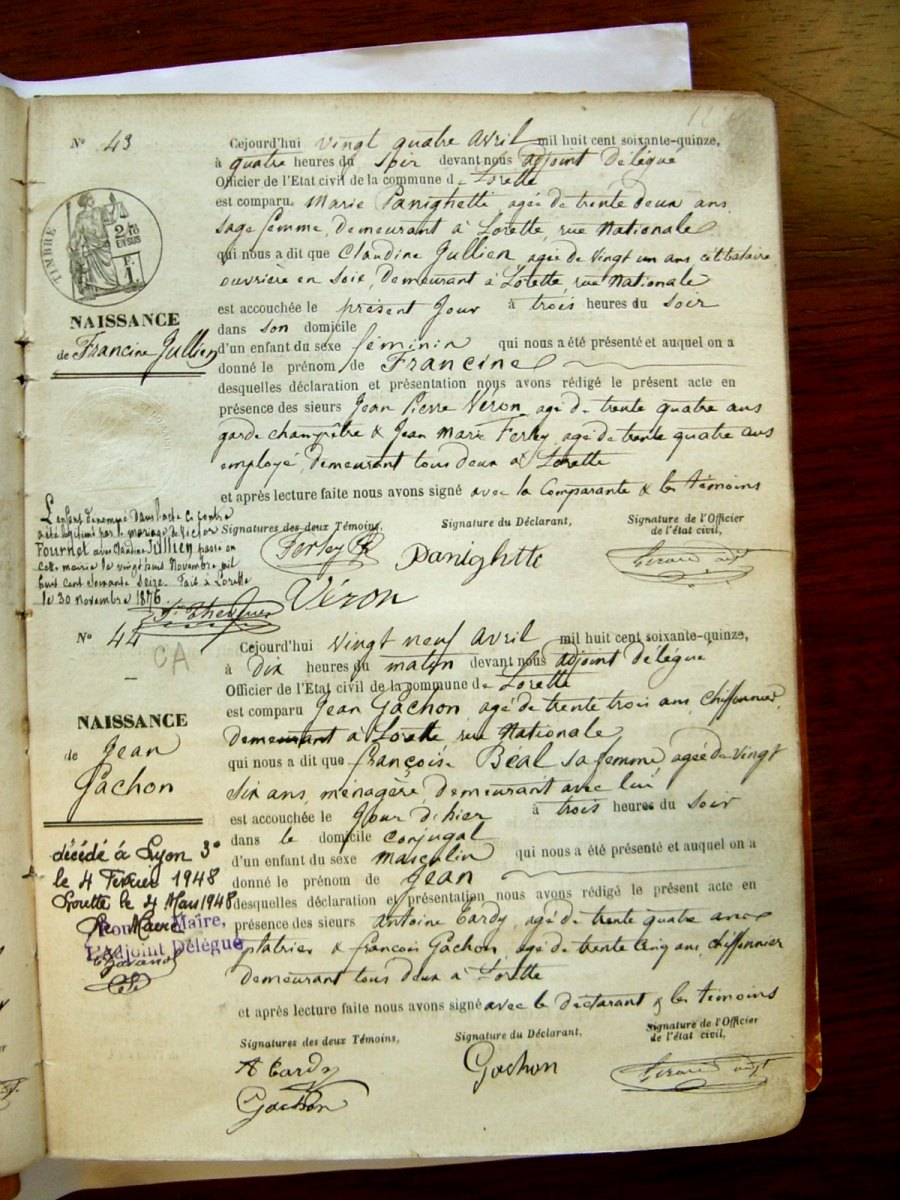 N° 43
TIMBRE
2/10
EN SUS
NAISSANCE
de Francine Jullien
Cejourd'hui vingt quatre avril mil huit cent soixante-quinze,
à quatre heures du soir devant nous adjoint délégué
Officier de l'Etat civil de la commune de Lorette
est comparu Marie Panighetti, agée de trente deux ans,
sage femme, demeurant à Lorette, rue Nationale
qui nous a dit que Claudine Jullien, agée de vingt un ans célibataire
ouvrière en soie, demeurant à Lorette, rue Nationale
est accouchée le présent jour à trois heures du soir
dans son domicile
d'un enfant du sexe féminin qui nous a été présenté et auquel on a
donné le prénom de Francine
desquelles déclaration et présentation nous avons rédigé le présent acte en
présence des sieurs Jean Pierre Véron, agé de trente quatre ans
garde champêtre & Jean Marie Ferley, agé de trente quatre ans
employé, demeurant tous deux à Lorette
et après lecture faite nous avons signé avec la Comparante & les témoins
L'enfant dénommé dans l'acte ci contre
a été légitimé par le mariage de Victor
Fournel avec Claudine Jullien passé en
cette mairie le vingt huit Novembre mil
huit cent soixante seize. Fait à Lorette
le 30 novembre 1876
Signatures des deux Témoins,
Signature du Déclarant,
Signature de l'Officier
de l'état civil,
Ferley
Panightti
Véron
N° 44
CA
NAISSANCE
de Jean
Gachon
Cejourd'hui vingt neuf avril mil huit cent soixante-quinze,
à dix heures du matin devant nous adjoint délégué
Officier de l'Etat civil de la commune de Lorette
est comparu Jean Gachon, agé de trente trois ans, chiffonnier,
demeurant à Lorette rue Nationale
qui nous a dit que françoise Béal sa femme, agée de vingt
six ans, ménagère, demeurant avec lui
est accouchée le jour d'hier à trois heures du soir
dans le domicile conjugal
d'un enfant du sexe masculin qui nous a été présenté et auquel on a
donné le prénom de Jean
desquelles déclaration et présentation nous avons rédigé le présent acte en
présence des sieurs antoine Tardy, agé de trente quatre ans
platrier & françois Gachon, agé de trente cinq ans, chiffonnier
demeurant tous deux à Lorette
et après lecture faite nous avons signé avec le déclarant & les témoins
décédé à Lyon 3e
le 4 Février 1948
Lorette le 4 Mars 1948
Le Maire
Pour le Maire,
L'Adjoint Délégué
Signatures des deux Témoins,
Signature du Déclarant,
Signature de l'Officier
de l'état civil,
A Tardy
Gachon
Gachon